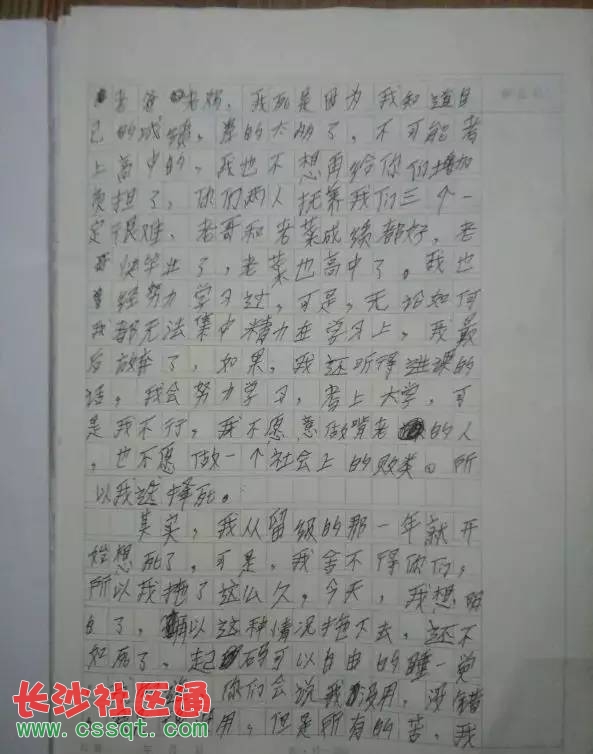 老爸老妈，我死是因为我知道自
己的成绩，差的太多了，不可能考
上高中的，我也不想再给你们增加
负担了，你们两人抚养我们三个一
定很难，老哥和老菜成绩都好，老
哥快毕业了，老菜也高中了。我也
曾经努力学习过，可是，无论如何
我都无法集中精力在学习上，我最
后放弃了，如果，我还听得进课的
话，我会努力学习，考上大学，可
是我不行，我不愿意做啃老的人
，也不愿做一个社会上的败类。所
以我选择死。
其实，我从留级的那一年就开
始想死了，可是，我舍不得你们，
所以我拖了这么久，今天，我想明
白了，以这种情况拖下去，还不
如死了，起码可以自由的睡一觉
你们会说我没用，没错
用，但是所有的苦，我
长沙社区通
www.cssqt.com